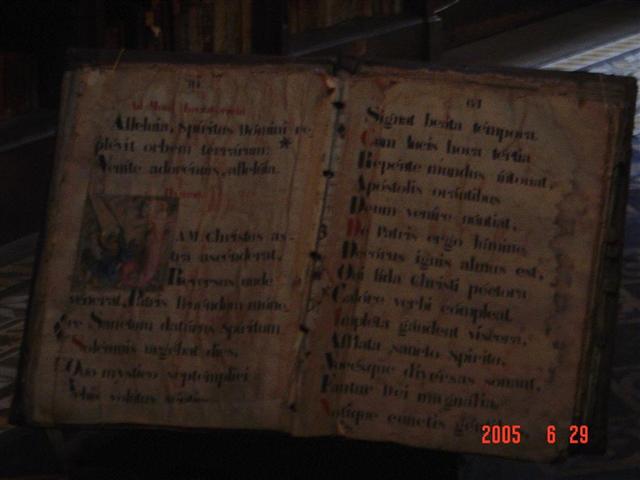 61
Alleluia, Spiritus Dómini re
plévit orbem terrárum: *
Veníte adorémus, allelúia.
IAM Christus as-
tra ascenderat,
Reversus unde
venerat, Patris fruéndum múne
re Sanctum datúrus Spiritum
Solémnis urgébat dies,
Quo mystico septémplici
Orbis volútus
Signat beáta témpora.
Cum lucis hora tértia
Repénte mundus íntonat,
Apóstolis orántibus
Deum veníre núntiat,
De Patris ergo lúmine
Decórus ignis almus est,
Qui fida Christi péctora
Calóre verbi cómpleat.
Impléta gaudent víscera,
Afflata sancto Spíritu,
Vocésque divérsas sonant,
Fantur Dei magnália.
Notíque cunctis
2005 6 29